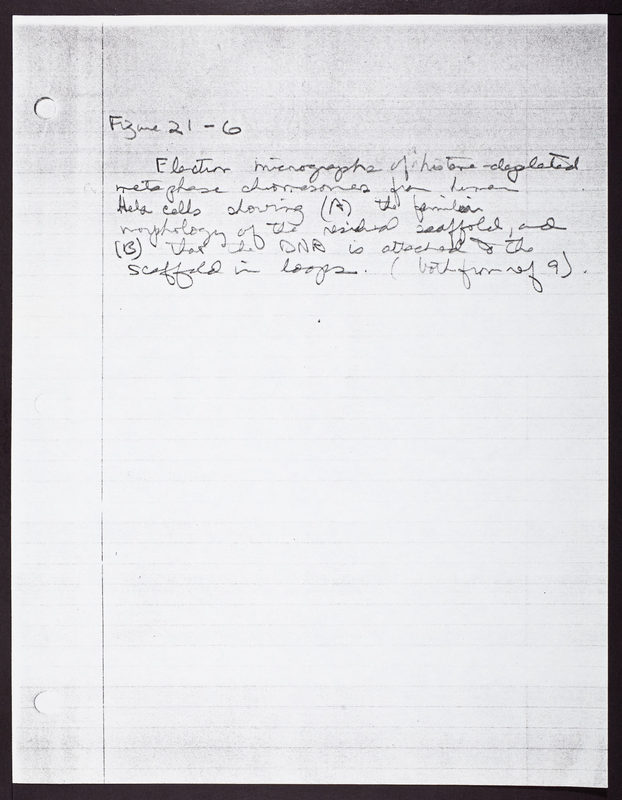 Figure 21-6
Electron micrographs of histone-depleted
metaphase chromosomes from human
Hela cells showing (A) the familiar
morphology of the residual scaffold, and
(B) that the DNA is attached to the
scaffold in loops. (both from ref 9).